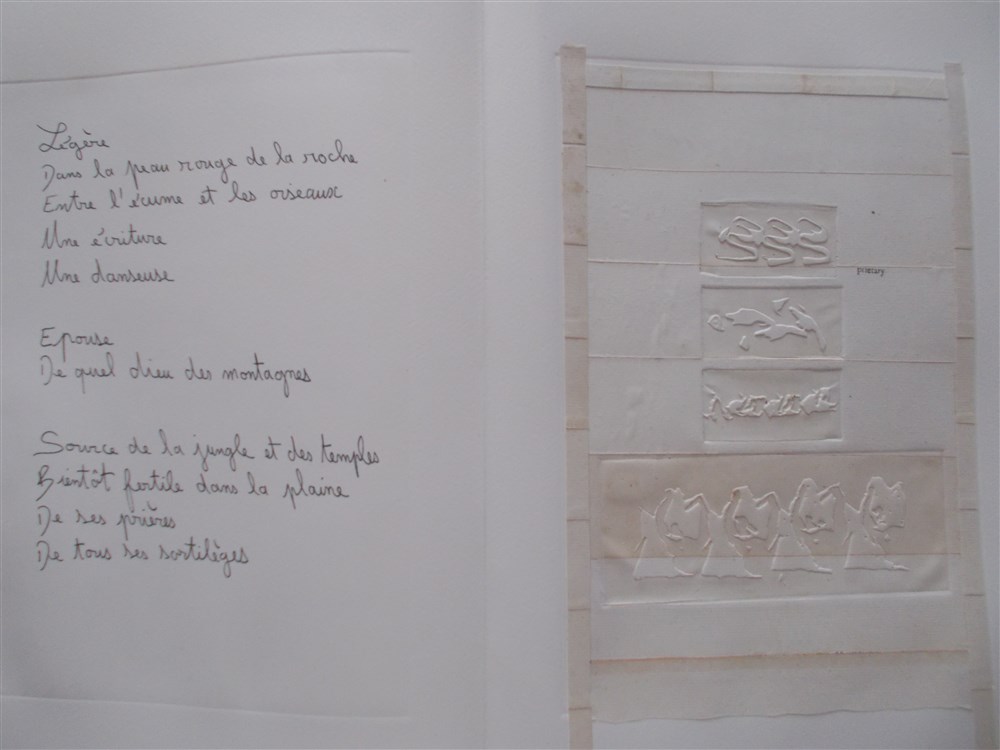 Légère
Dans la peau rouge de la roche
Entre l'écume et les oiseaux
Une écriture
Une danseuse
Epouse
De quel dieu des montagnes
Source de la jungle et des temples
Bientôt fertile dans la plaine
De ses prières
De tous ses sortilèges